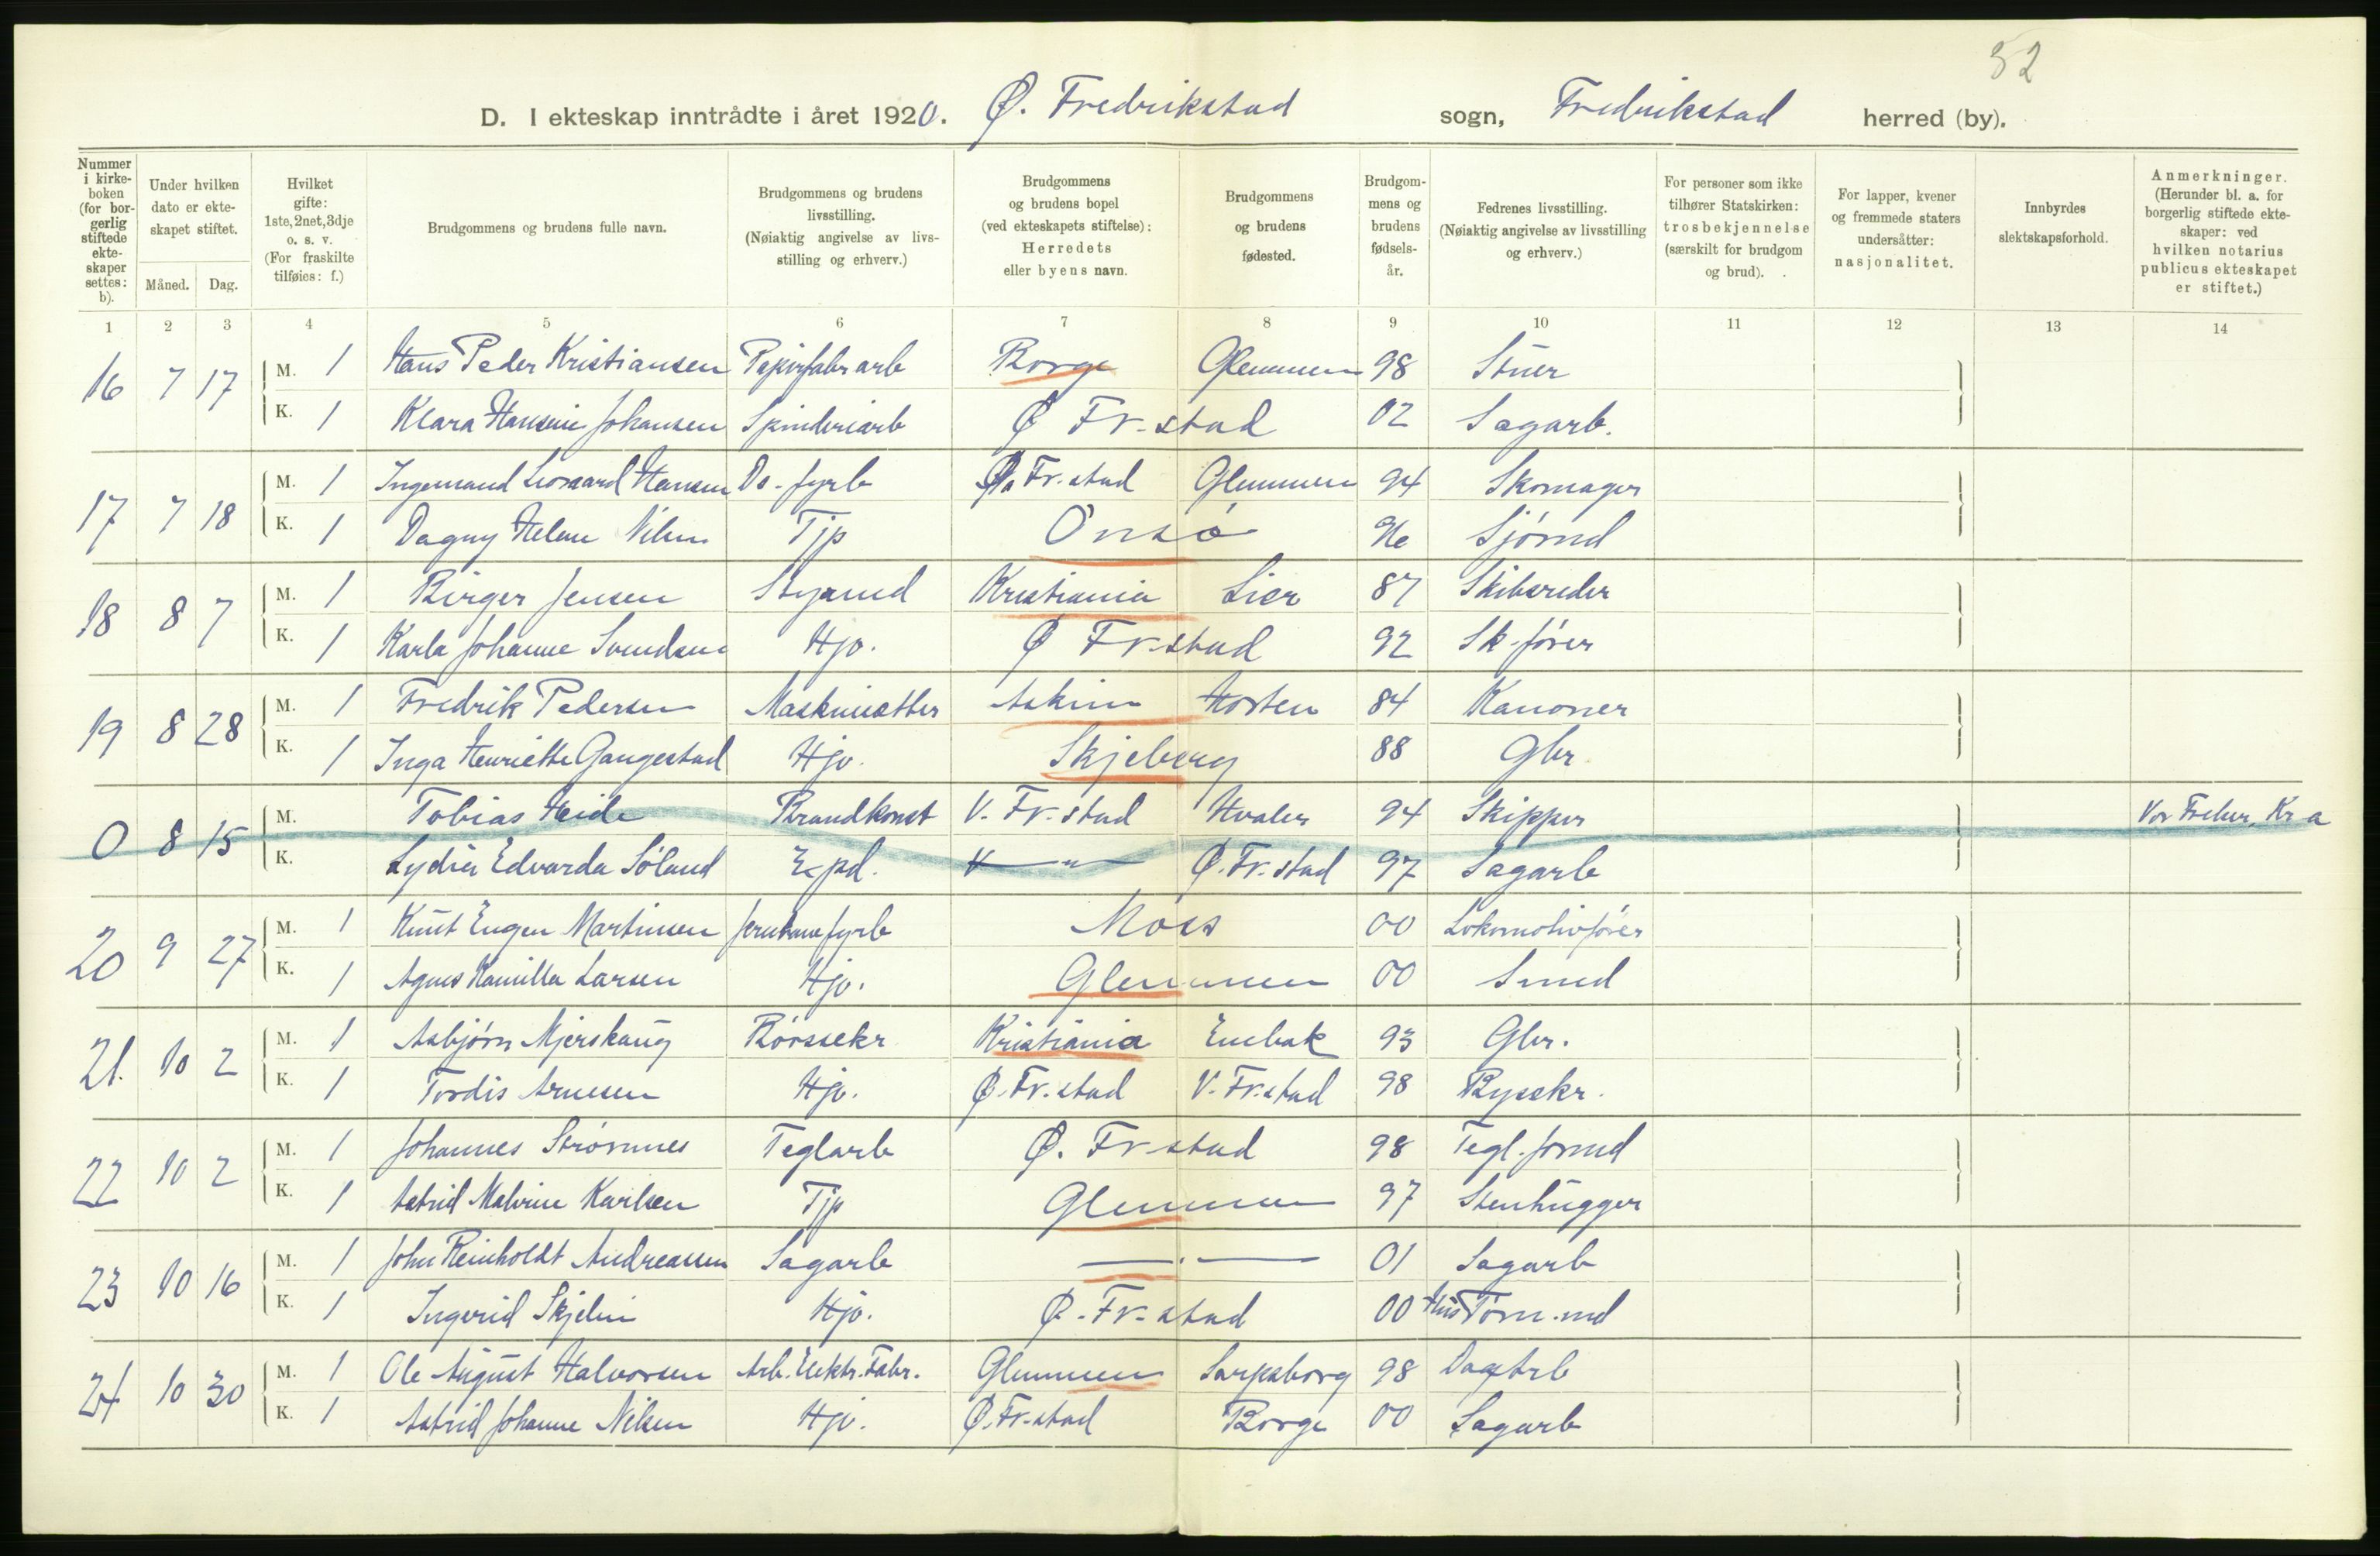 32
D. I ekteskap inntrådte i året 1920. Ø. Fredrikstad sogn, Fredrikstad herred (by).
Nummer i kirke-boken (for bor-gerlig stiftede ekte-skaper settes: b).
Under hvilken dato er ekte-skapet stiftet.
Måned. Dag.
Hvilket gifte: 1ste, 2net, 3dje o. s. v. (For fraskilte tilføies: f.)
Brudgommens og brudens fulle navn.
Brudgommens og brudens livsstilling. (Nøiaktig angivelse av livs-stilling og erhverv.)
Brudgommens og brudens bopel (ved ekteskapets stiftelse): Herredets eller byens navn.
Brudgommens og brudens fødested.
Brudgom-mens og brudens fødsels-år.
Fedrenes livsstilling. (Nøiaktig angivelse av livsstilling og erhverv.)
For personer som ikke tilhører Statskirken: trosbekjennelse (særskilt for brudgom og brud).
For lapper, kvener og fremmede staters undersåtter: nasjonalitet.
Innbyrdes slektskapsforhold.
Anmerkninger. (Herunder bl. a. for borgerlig stiftede ekte-skaper: ved hvilken notarius publicus ekteskapet er stiftet.)
1 2 3 4 5 6 7 8 9 10 11 12 13 14
16 7 17 M. 1 Hans Peder Kristiansen Papirfabrarb Borge Glemmen 98 Stuer
K. 1 Klara Hansine Johansen Spinderiarb Ø Fr.stad 02 Sagarb.
17 7 18 M. 1 Ingemand Leonard Hansen Do-fyrb Ø. Fr.stad Glemmen 94 Skomager
K. 1 Dagny Helene Nilsen Tjp Onsø 96 Sjømd
18 8 7 M. 1 Birger Jensen Styrmd Kristiania Lier 87 Skibsreder
K. 1 Karla Johanne Svendsen Hjv. Ø Fr.stad 92 Sk-fører
19 8 28 M. 1 Fredrik Pedersen Maskinsetter Askim Horten 84 Kanoner
K. 1 Inga Henriette Gangestad Hjv. Skjeberg 88 Gbr
0 8 15 M. Tobias Heide Brandkonst V. Fr.stad Hvaler 94 Skipper Vor Frelser, Kr a
K. Lydia Edvarda Søland Expd. — " — Ø. Fr.stad 97 Sagarb
20 9 27 M. 1 Knut Eugen Martinsen Jernbanefyrb Moss 00 Lokomotivfører
K. 1 Agnes Kamilla Larsen Hjv. Glemmen 00 Smed
21. 10 2 M. 1 Asbjørn Mjerskaug Børssekr Kristiania Enebak 93 Gbr.
K. 1 Tordis Arnesen Hjv. Ø. Fr.stad V. Fr.stad 98 Byssekr.
22 10 2 M. 1 Johannes Strømnes Teglarb Ø. Fr stad 98 Tegl.formd
K. 1 Astrid Malvine Karlsen Tjp Glemmen 97 Stenhugger
23 10 16 M. 1 John Reinholdt Andreassen Sagarb — " — 01 Sagarb
K. 1 Ingerid Skjelin Hjv. Ø. Fr.stad 00 Tøm.md
24 10 30 M. 1 Ole August Halvorsen Arb. Elektr. Fabr. Glemmen Sarpsborg 98 Dagarb
K. 1 Astrid Johanne Nilsen Hjv. Ø. Fr.stad Borge 00 Sagarb